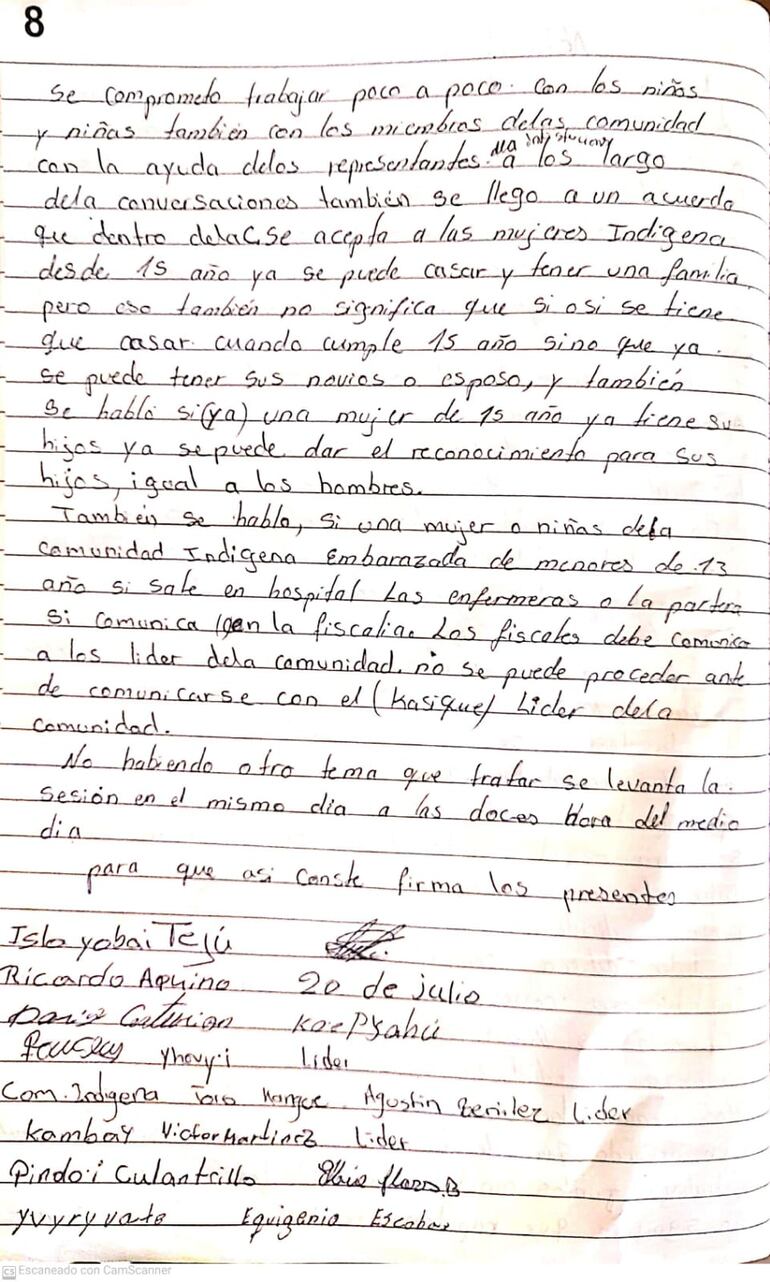 8
se comprometo trabajar poco a poco. Con los niñas
y niñas también con los miembros delas comunidad
con la ayuda delos representantes. a los largo
dela conversaciones también se llego a un acuerdo
que dentro delaC,se acepta a las mujeres Indigena
desde 15 año ya se puede casar y tener una familia,
pero eso también no significa que si osi se tiene
que casar. cuando cumple 15 año sino que ya.
se puede tener sus novios o esposo, y también
se habló si(ya) una mujer de 15 año ya tiene su
hijos ya sepuede dar el reconocimiento para sus
hijos, igual a los hombres.
También se hablo, si una mujer o niñas dela
comunidad Indigena Embarazada de menores de 13
año si sale en hospital Las enfermeras o la partera
si comunica en la fiscalia. Los fiscales debe comunica
a los lider dela comunidad. no se puede proceder ante
de comunicarse con el (Kasique) Lider dela
comunidad.
No habiendo otro tema que tratar se levanta la.
sesión en el mismo dia a las doces Hora del medio
dia
para que asi Conste firma los presentes
Isla yobai Tejú
Ricardo Aquino 20 de julio
Centurion
yhovy.i Lider
Com. Indgena Agustin Benilez Lider
Kambay Victor Martinez Lider
Pindo'i Culantrillo flores.B
yvyry Equigenio Escobar
CS Escaneado con CamScanner